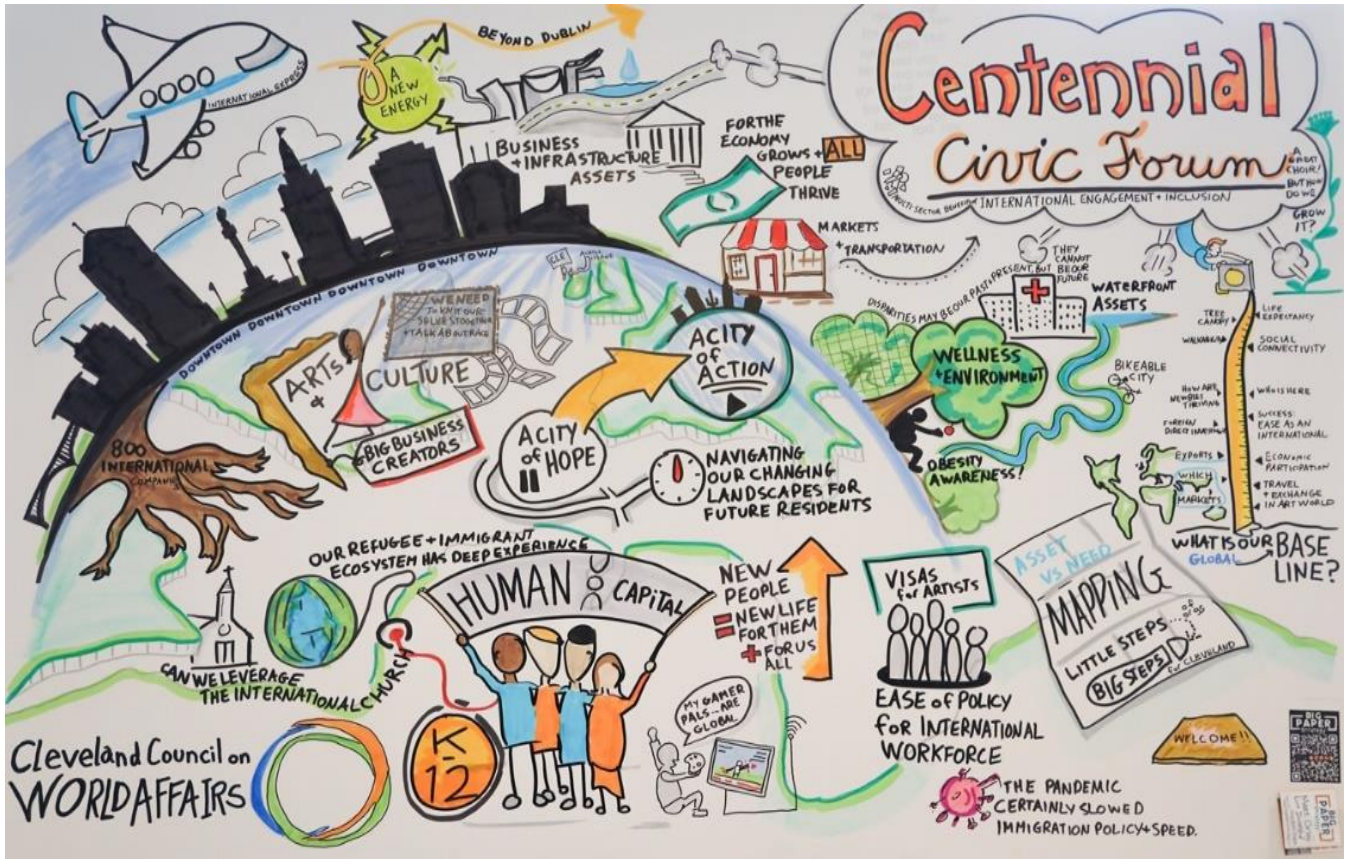 INTERNATIONAL EXPRESS
A
NEW
ENERGY
BEYOND DUBLIN
BUSINESS
+ INFRASTRUCTURE
ASSETS
FOR THE
ECONOMY
GROWS + ALL
PEOPLE
THRIVE
MARKETS
+ TRANSPORTATION
Centennial
Civic Forum
MULTI SECTOR
INTERNATIONAL ENGAGEMENT + INCLUSION
A
GREAT
CHOIR!
BUT HOW
DO WE
GROW
IT?
DOWNTOWN DOWNTOWN DOWNTOWN DOWNTOWN DOWNTOWN
CLE
WE NEED
TO KNIT OUR
SELVES TOGETHER
+ TALK ABOUT RACE
ARTS
+
CULTURE
BIG BUSINESS
CREATORS
800
INTERNATIONAL
COMPANIES
A CITY
of
HOPE
A CITY
of
ACTION
NAVIGATING
OUR CHANGING
LANDSCAPES FOR
FUTURE RESIDENTS
DISPARITIES MAY BE OUR PAST + PRESENT, BUT
THEY
CANNOT
BE OUR
FUTURE
WATERFRONT
ASSETS
WELLNESS
+ ENVIRONMENT
BIKEABLE
CITY
OBESITY
AWARENESS!
TREE
CANOPY
WALKABLE
HOW ARE
NEWBIES
THRIVING
FOREIGN
DIRECT INVEST
EXPORTS
WHICH
MARKETS
LIFE
EXPECTANCY
SOCIAL
CONNECTIVITY
WHO IS HERE
SUCCESS:
EASE AS AN
INTERNATIONAL
ECONOMIC
PARTICIPATION
TRAVEL
+ EXCHANGE
IN ART WORLD
WHAT IS OUR
GLOBAL
BASE
LINE?
OUR REFUGEE + IMMIGRANT
ECOSYSTEM HAS DEEP EXPERIENCE
CAN WE LEVERAGE
THE INTERNATIONAL CHURCH
HUMAN CAPITAL
K-
12
NEW
PEOPLE
= NEW LIFE
FOR THEM
+ FOR US
ALL
MY GAMER
PALS... ARE
GLOBAL
VISAS
for ARTISTS
EASE of POLICY
for INTERNATIONAL
WORKFORCE
ASSET
VS NEED
MAPPING
LITTLE STEPS
BIG STEPS
for CLEVELAND
WELCOME!!
THE PANDEMIC
CERTAINLY SLOWED
IMMIGRATION POLICY + SPEED.
Cleveland Council on
WORLD AFFAIRS
BIG
PAPER
BIG
PAPER